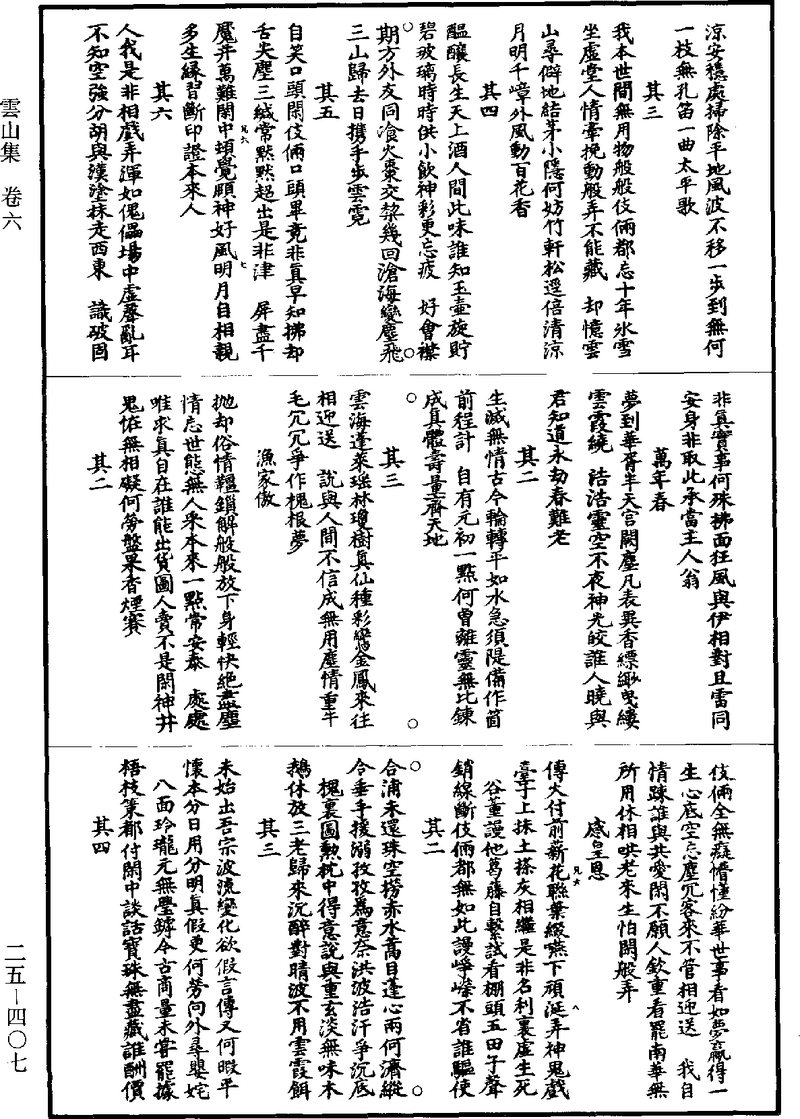 涼安穩處掃除平地風波不移一步到無何
一枝無孔笛一曲太平歌
其三
我本世間無用物般般伎倆都忘十年氷雪
坐虛堂人情牽挽動般弄不能藏　却憶雲
山尋僻地結茅小隱何妨竹軒松逕倍清涼
月明千嶂外風動百花香
其四
醞釀長生天上酒人間此味誰知玉壺旋貯
碧玻璃時時供小飲神彩更忘疲　好會襟
期方外友同飡火棗交棃幾回滄海變塵飛
三山歸去日携手步雲霓
其五
自笑口頭閑伎倆口頭畢竟非真早知拂却
舌尖塵三緘常黙黙超出是非津　屏盡千
魔并萬難閑中頓覺頤神好風明月自相親
多生緣習斷印證本來人
其六
人我是非相戲弄渾如傀儡場中虛聲亂耳
不知空強分胡與漢塗抹走西東　識破固
非真實事何殊拂面狂風與伊相對且雷同
安身非取此承當主人翁
萬年春
夢到華胥半天宮闕塵凡表異香縹緲曳縷
雲霞繞　浩浩靈空不夜神光皎誰人曉與
君知道永劫春難老
其二
生滅無情古今輪轉平如水急須隄備作箇
前程計　自有元初一點何曾離靈無比鍊
成真體壽量齊天地
其三
雲海蓬萊瑶林瓊樹真仙種彩鸞金鳳來往
相迎送　說與人間不信成無用塵情重牛
毛冗冗爭作槐根夢
漁家傲
抛却俗情韁鎖解般般放下身輕快絶盡塵
情忘世態無人來本來一點常安泰　處處
唯求真自在誰能出貨圖人賣不是閑神并
鬼恠無相礙何勞盤果香煙賽
其二
伎倆全無癡懵懂紛華世事看如夢贏得一
生心底空忘塵冗客來不管相迎送　我自
情踈誰與共愛閑不願人欽重看罷南華無
所用休相哄老來生怕閑般弄
感皇恩
傳火付前薪花聯葉綴嚥下頑涎弄神鬼戲
臺子上抹土搽灰相繼是非名利裏虛生死
谷董謾他葛藤自繫試看棚頭五田子聲
銷線斷伎倆都無如此謾崢嶸不省誰驅使
其二
合浦未還珠空撈赤水蒿目蓬心兩何濟縱
令垂手援溺孜孜為意奈洪波浩汗爭沉底
槐裏圖勲枕中得意說與重玄淡無味木
鵝休放三老歸來沉醉對晴波不用雲霞餌
其三
未始出吾宗波流變化欲假言傳又何暇平
懷本分日用分明真假更何勞向外尋嬰姹
八面玲瓏元無璺罅今古商量未甞罷據
梧枝策都付閑中談話寶珠無盡藏誰酬價
其四
雲山集　卷六
二五－四〇七